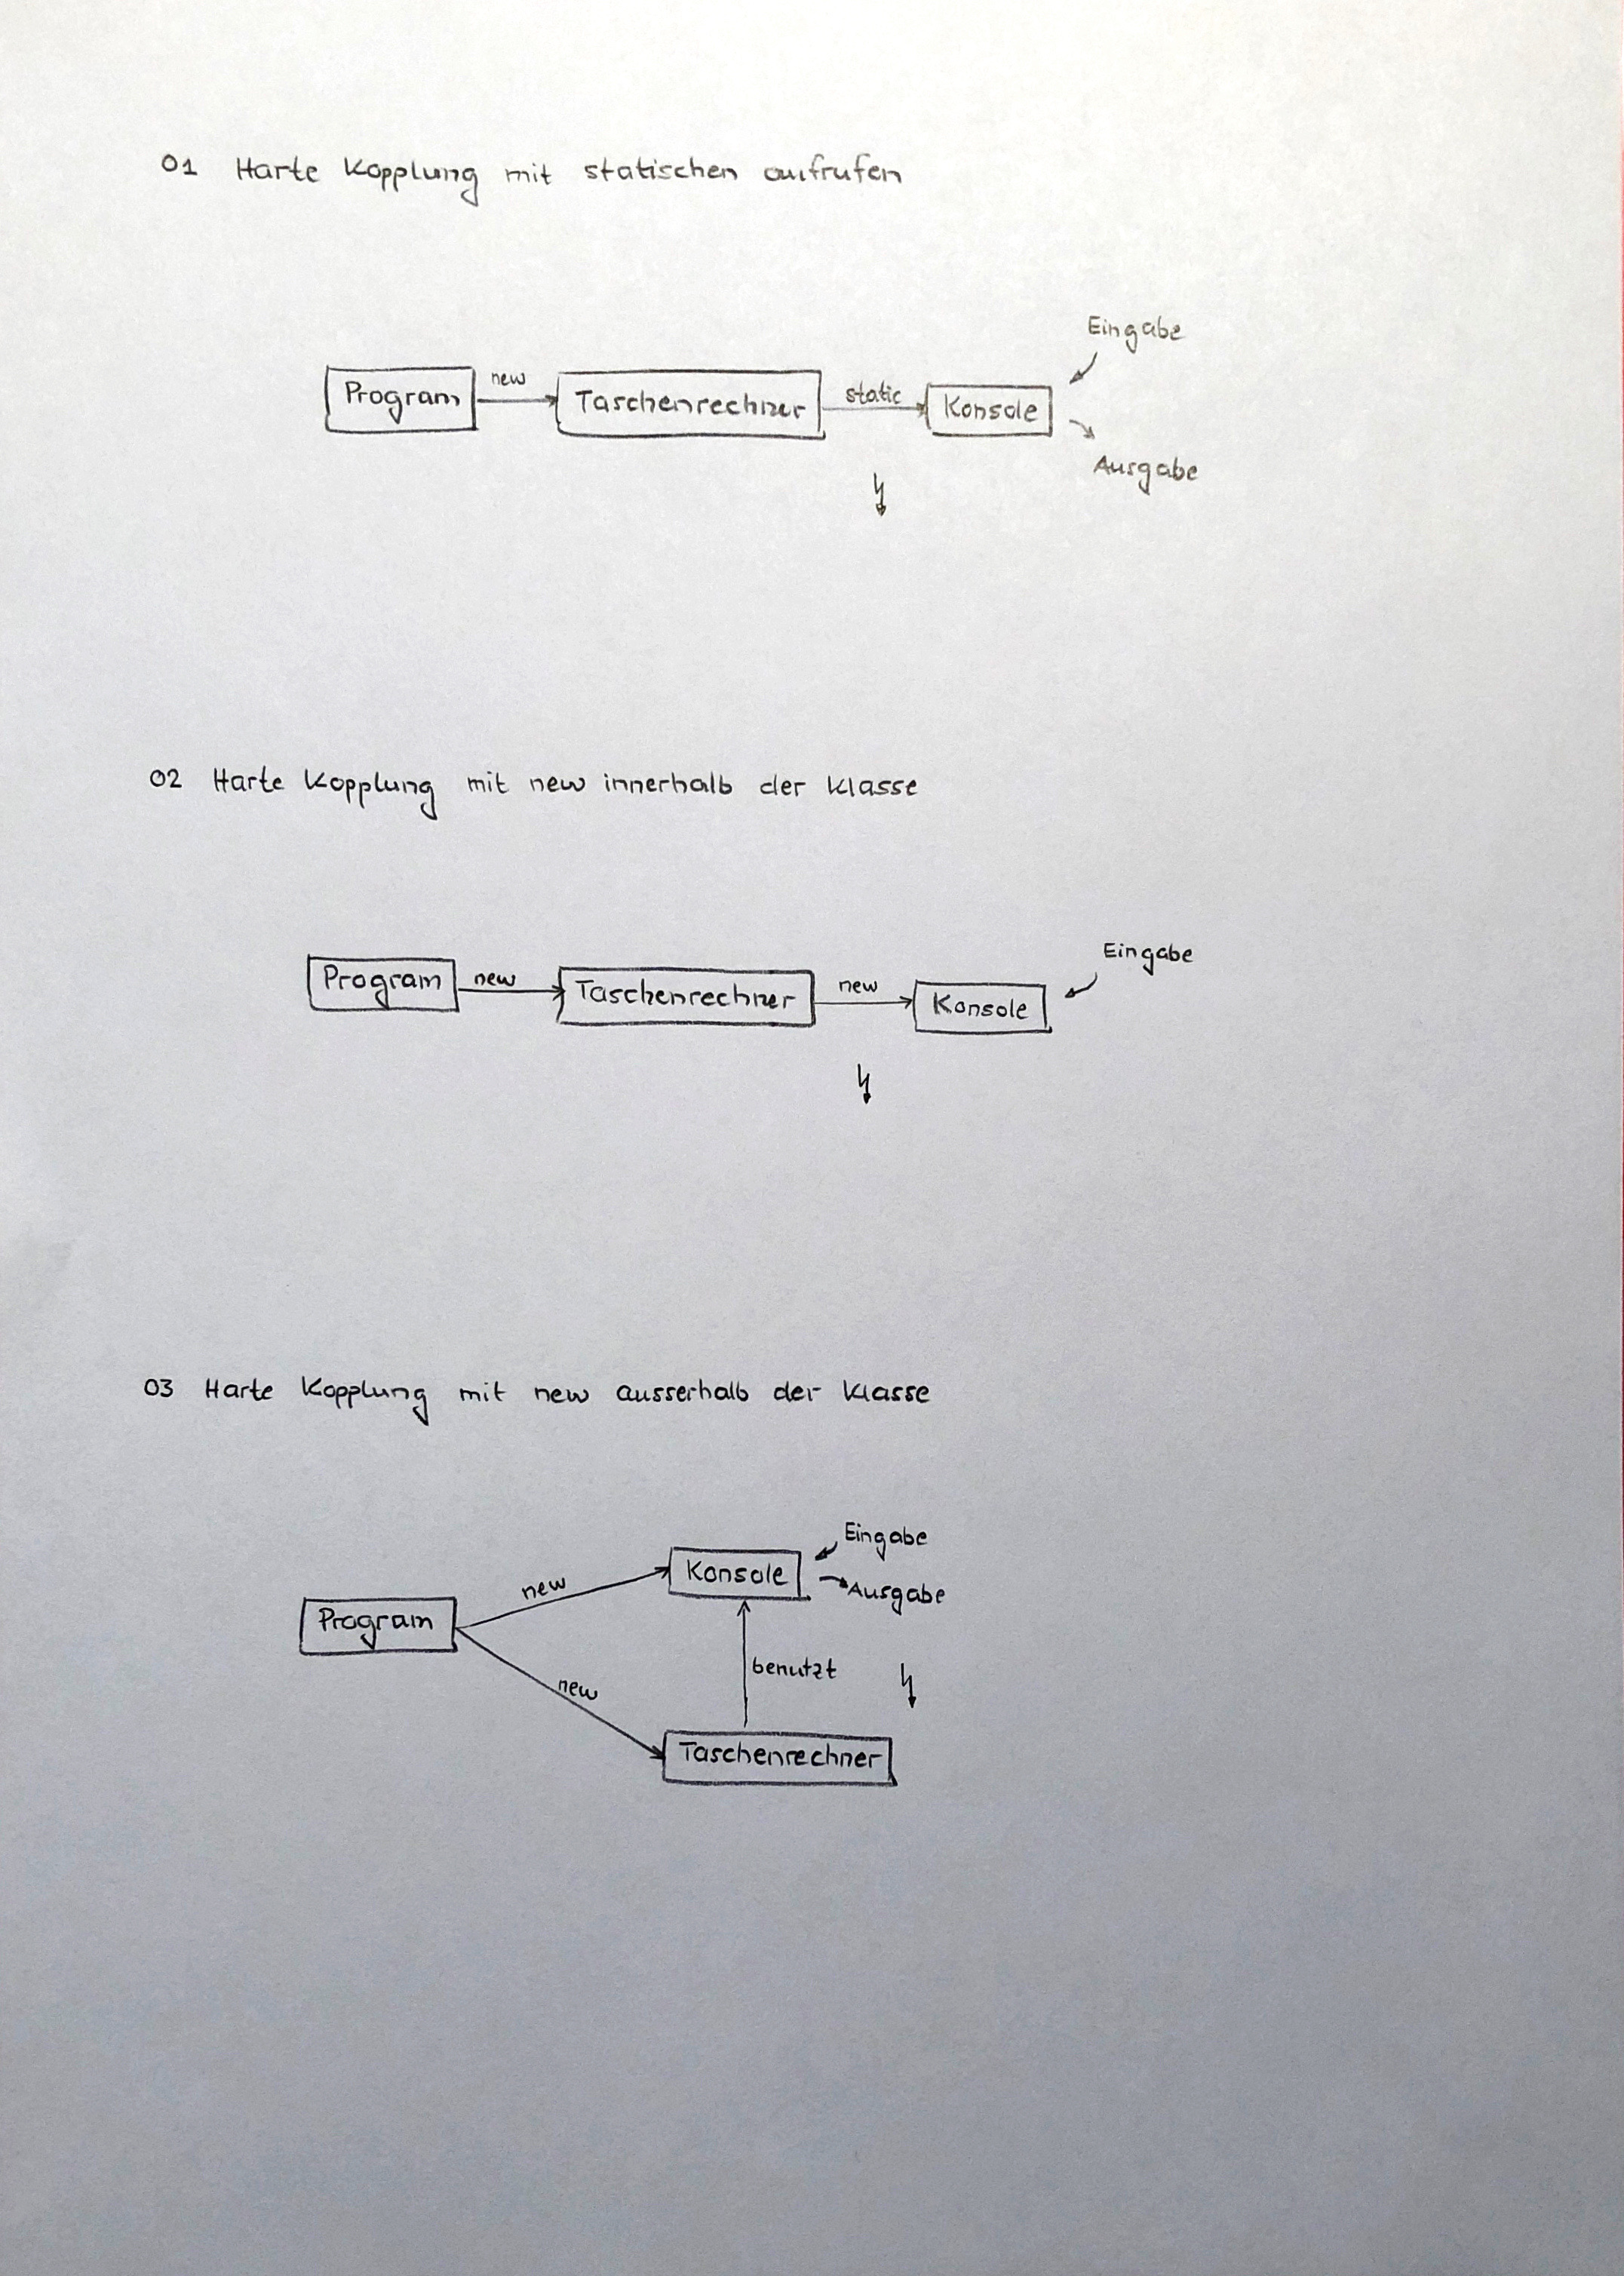 01 Harte Kopplung mit statischen aufrufen
Eingabe
Program new Taschenrechner static Konsole
Ausgabe
02 Harte Kopplung mit new innerhalb der Klasse
Eingabe
Program new Taschenrechner new Konsole
03 Harte Kopplung mit new ausserhalb der Klasse
Eingabe
Konsole
new
Ausgabe
Program
benutzt
new
Taschenrechner